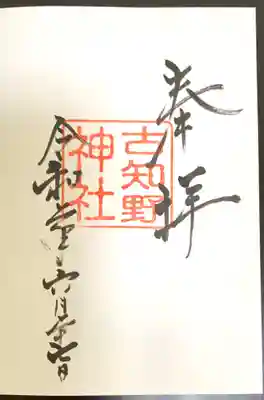 奉拝
古知野
神社
令和六月七日